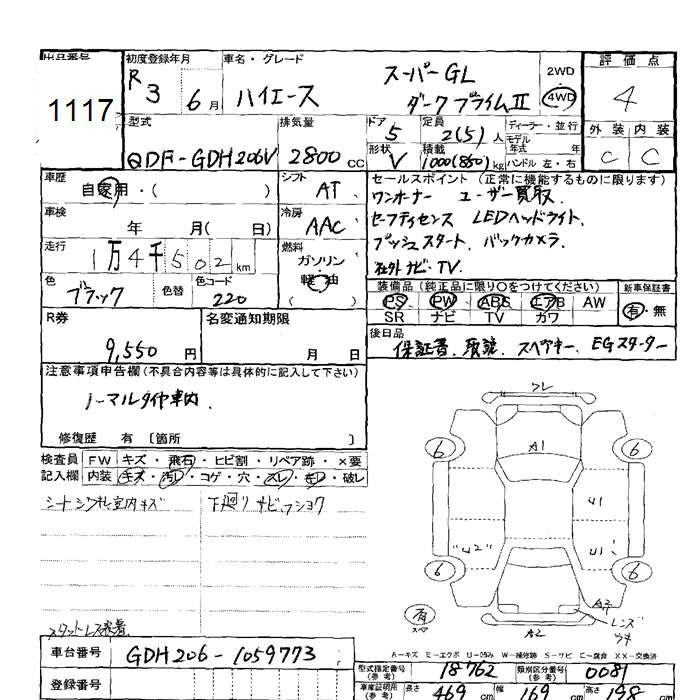 出品番号
1117
初度登録年月
R3 6月
車名・グレード
ハイエース
スーパーGL
ダークプライムⅡ
2WD
4WD
評価点
4
型式
QDF-GDH206V
排気量
2800cc
ドア
5
形状
V
定員
2(5)人
積載
1000(850)kg
ディーラー・並行
モデル
年式 年
ハンドル 左・右
外装 内装
C C
車歴
自家用・( )
シフト
AT
セールスポイント(正常に機能するものに限ります)
ワンオーナー ユーザー買取
セーフティセンス LEDヘッドライト
プッシュスタート バックカメラ
社外ナビ・TV
車検
年 月( 日)
冷房
AAC
走行
1万4千502km
燃料
ガソリン
軽油
色
ブラック
色替
色コード
220
装備品(純正品に限り○をつけてください)
PS PW ABS エアB AW
SR ナビ TV カワ
新車保証書
有・無
R券
9,550円
名変通知期限
月 日
後日品
保証書、取説、スペアキー、EGスターター
注意事項申告欄(不具合内容等は具体的に記入して下さい)
ノーマルタイヤ車内.
修復歴 有 〔箇所 〕
検査員
記入欄
FW キズ・飛石・ヒビ割・リペア跡・×要
内装 キズ・汚レ・コゲ・穴・スレ・キレ・破レ
シートシワ 室内キズ
下廻りサビ、フショク
スタットレス装着
フレ
A1
6
6
U1
"U2"
U1
6
6
有
スペア
A2
A3
レンズ
ウキ
A-キズ E-エクボ U-凹み W-補修跡 S-サビ C-腐食 XX-交換済
車台番号
GDH206-1059773
登録番号
型式指定番号
(参考)
18762
類別区分番号
(参考)
0081
車庫証明所
(参考)
長さ
469cm
幅
169cm
高さ
198cm